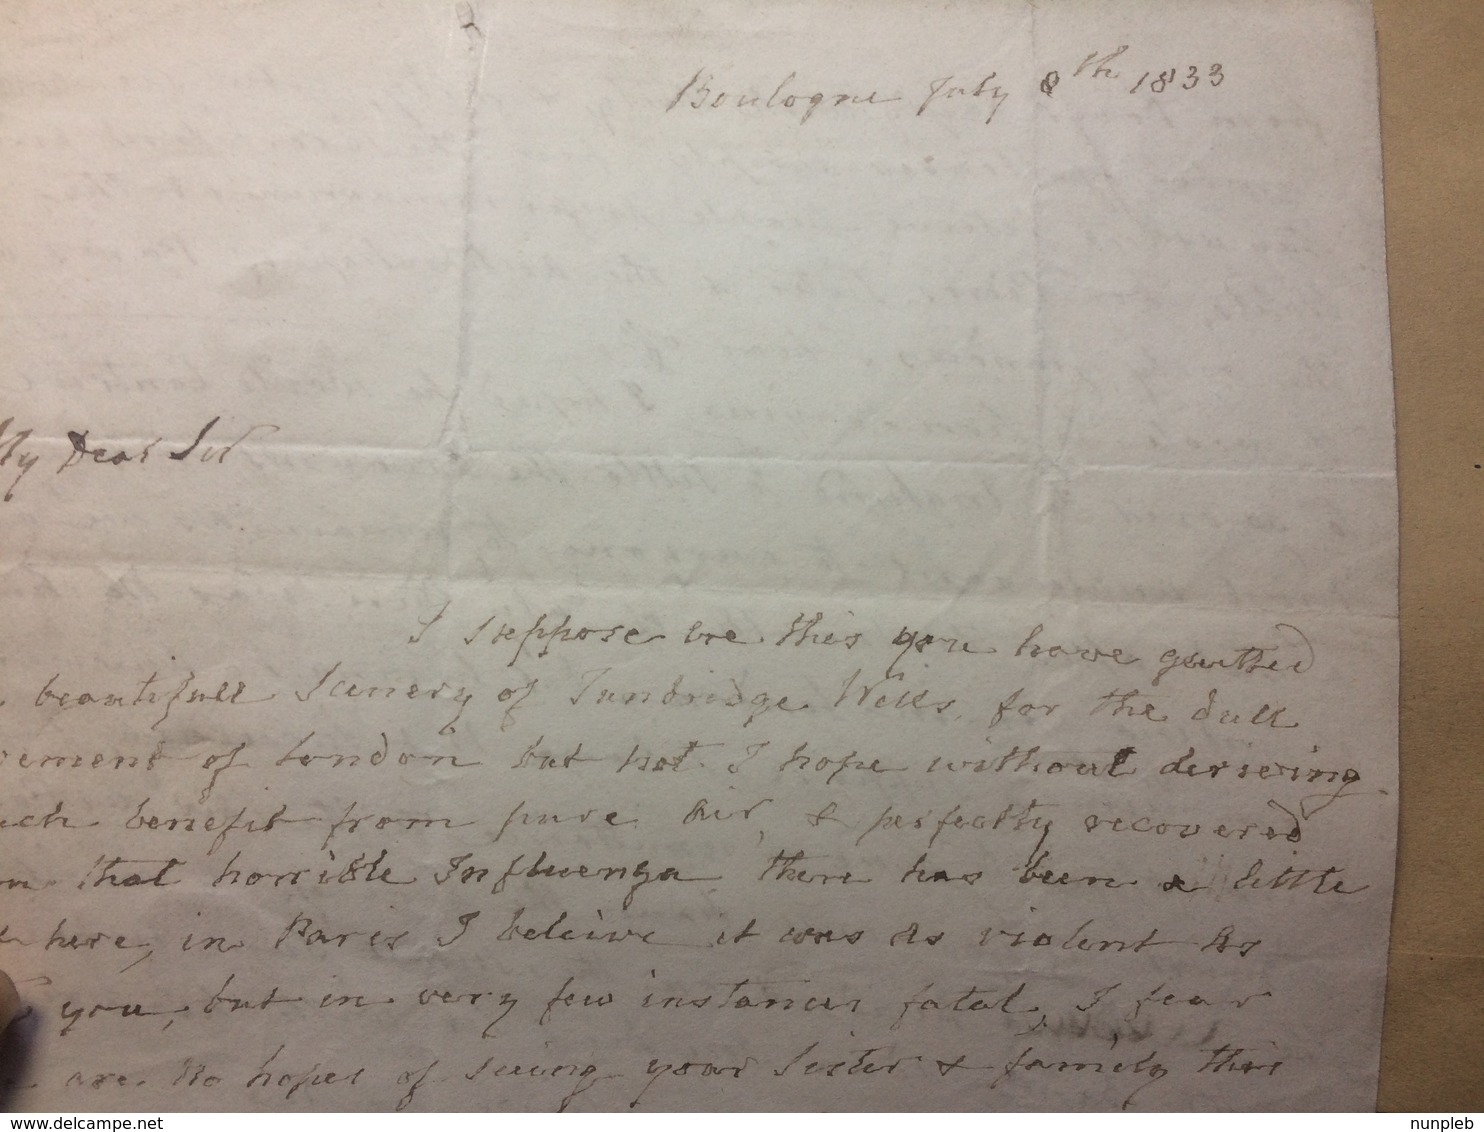 Boulogne July 8th 1833
My Dear Sir
I suppose ere this you have quitted
beautifull Scenery of Tunbridge Wells, for the dull
of London but not I hope without deriving
benefit from pure air, & perfectly recovered
that horrible Influenza there has been a little
here, in Paris I beleive it was as violent as
you, but in very few instances fatal, I fear
are no hopes of seeing your Sister & family this
delcampe.net
nunpleb